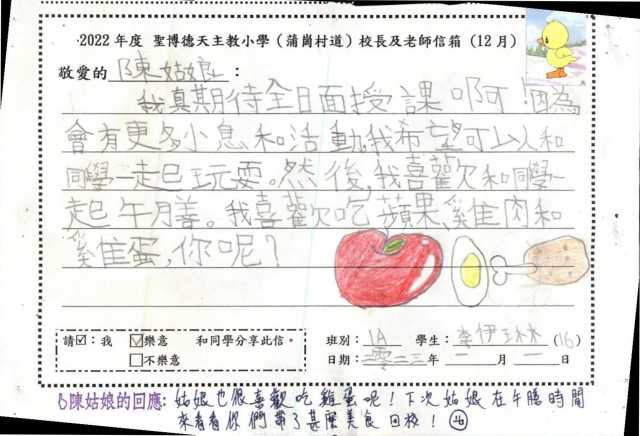 ·2022 年度 聖博德天主教小學（蒲崗村道）校長及老師信箱（12月）
敬愛的陳姑娘：
我真期待全日面授課啊！因為
會有更多小息和活動，我希望可以和
同學一起玩耍。然後，我喜歡和同學一
起午膳。我喜歡吃蘋果、雞肉和
雞蛋，你呢？
請☑：我 ☑樂意 和同學分享此信。
□不樂意
班別：1A 學生：李伊琳 (16)
日期：二零二三年一月一日
陳姑娘的回應：姑娘也很喜歡吃雞蛋呢！下次姑娘在午膳時間
來看看你們帶了甚麼美食回校！